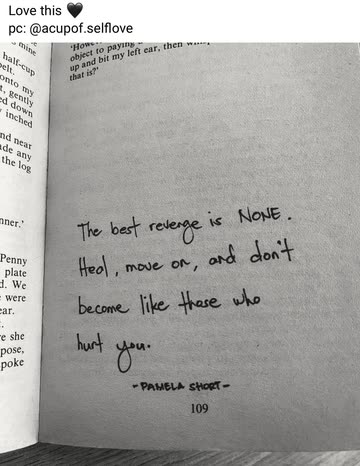 Love this 🖤
pc: @acupof.selflove
mine
half-cup
belt.
onto my
t, gently
ed down
inched
nd near
ade any
the log
nner.'
Penny
plate
d. We
were
ear.
t.
re she
pose,
poke
'Howe
object to paying
up and bit my left ear, then
that is?'
The best revenge is NONE.
Heal, move on, and don't
become like those who
hurt you.
- PAMELA SHORT -
109